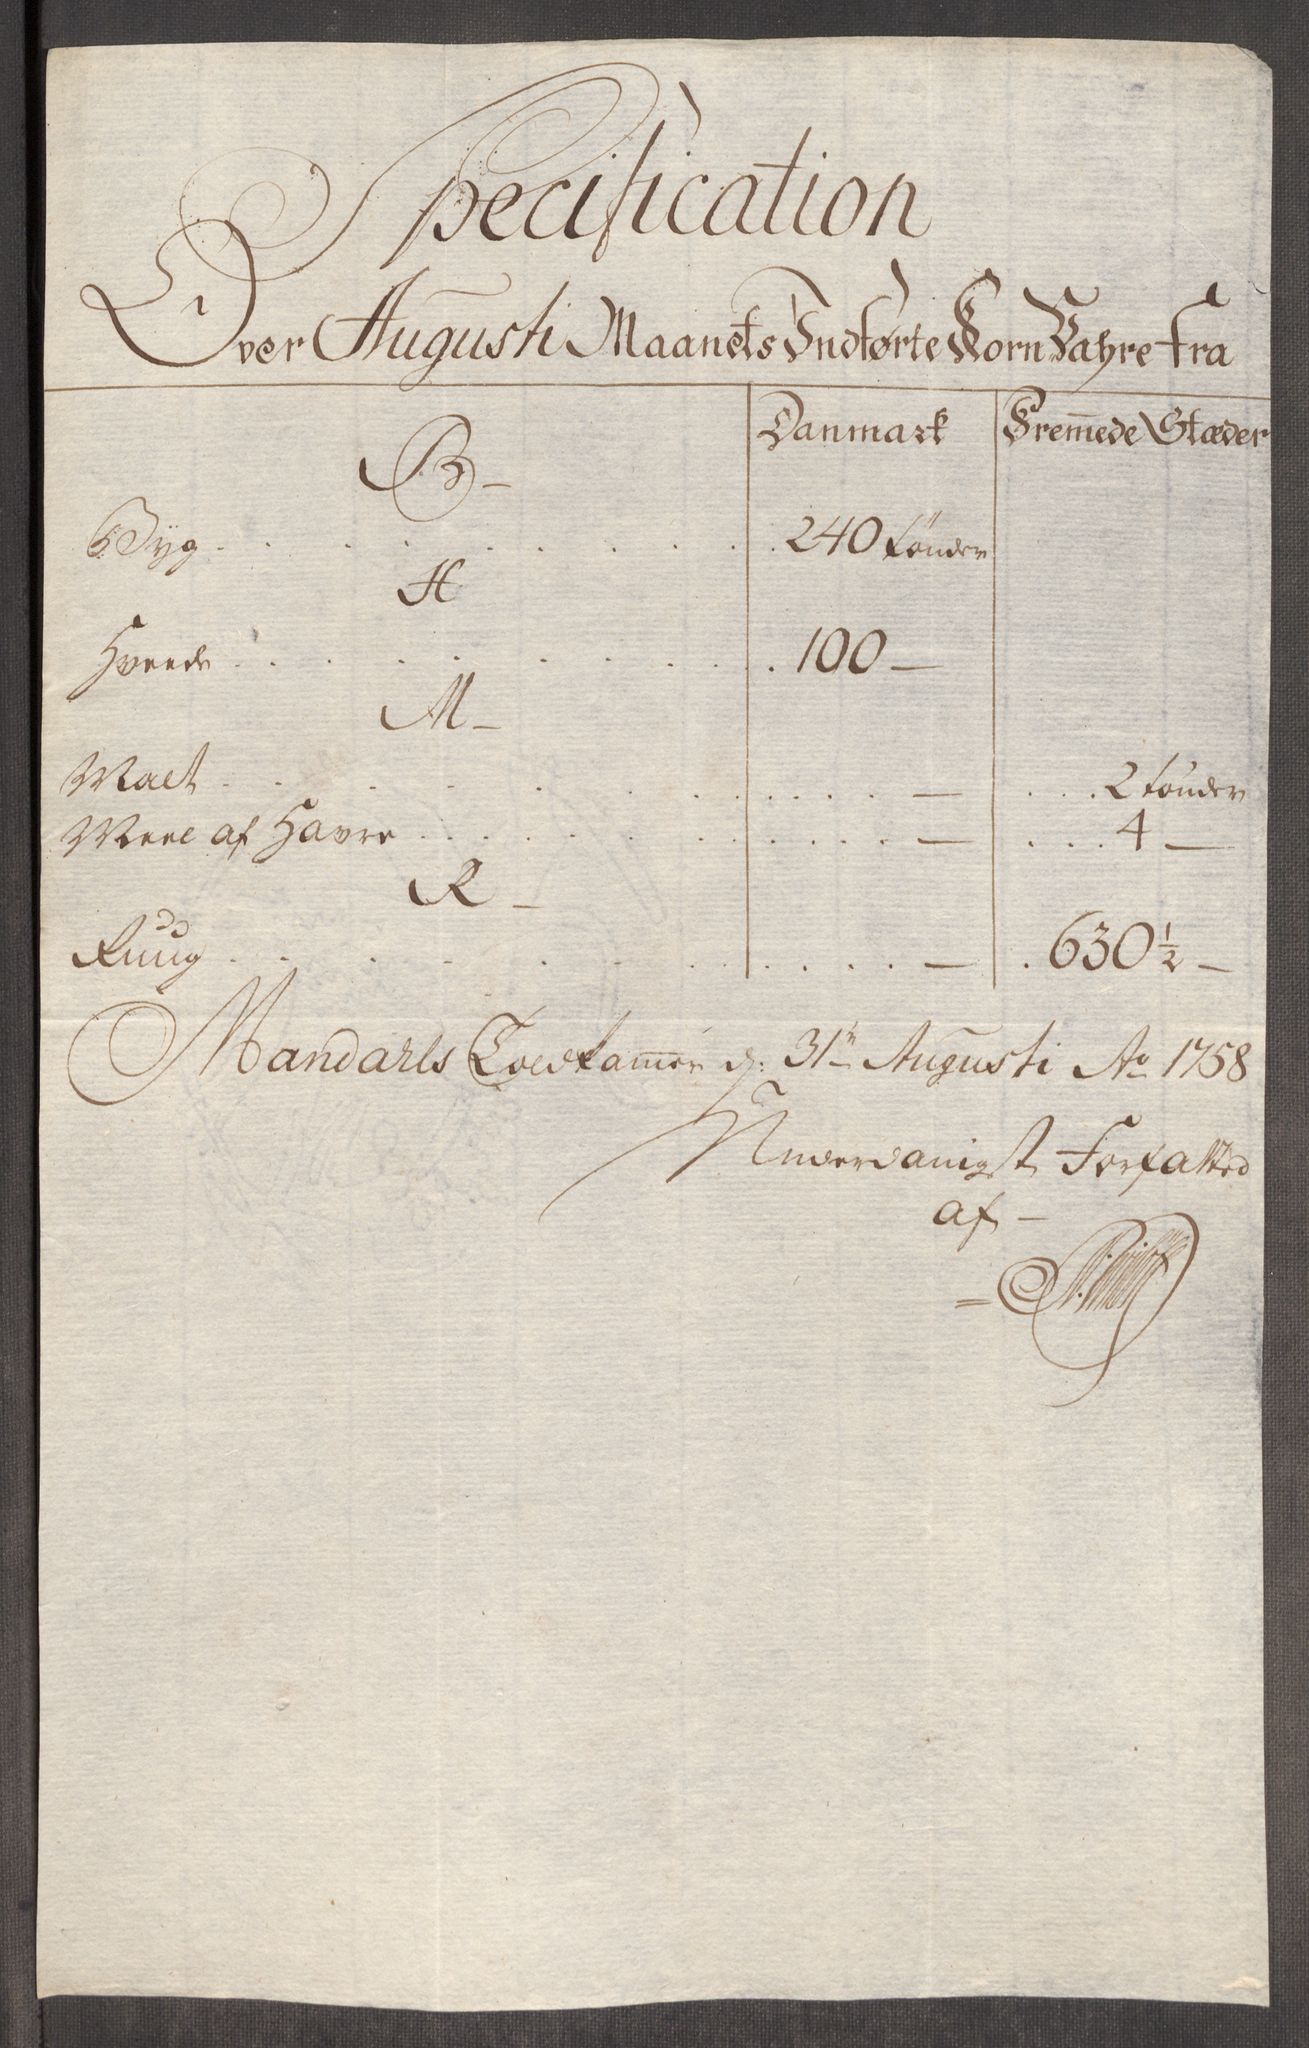 Specification
Over Augusti Maanets Indførte Korn Vahre fra
Danmark Fremmede Stæder
B -
Byg . . . . . . . . . 240 tønder
H
Hveede . . . . . . . . . 100 —
M -
Malt . . . . . . . . . — . . . 2 tønder
Meel af Havre . . . . . . . . . — . . . 4 —
R -
Ruug . . . . . . . . . — . 630 ½ —
Mandahls Toldkammer d: 31te Augusti Ao 1758
Underdanigst Forfatted
af -